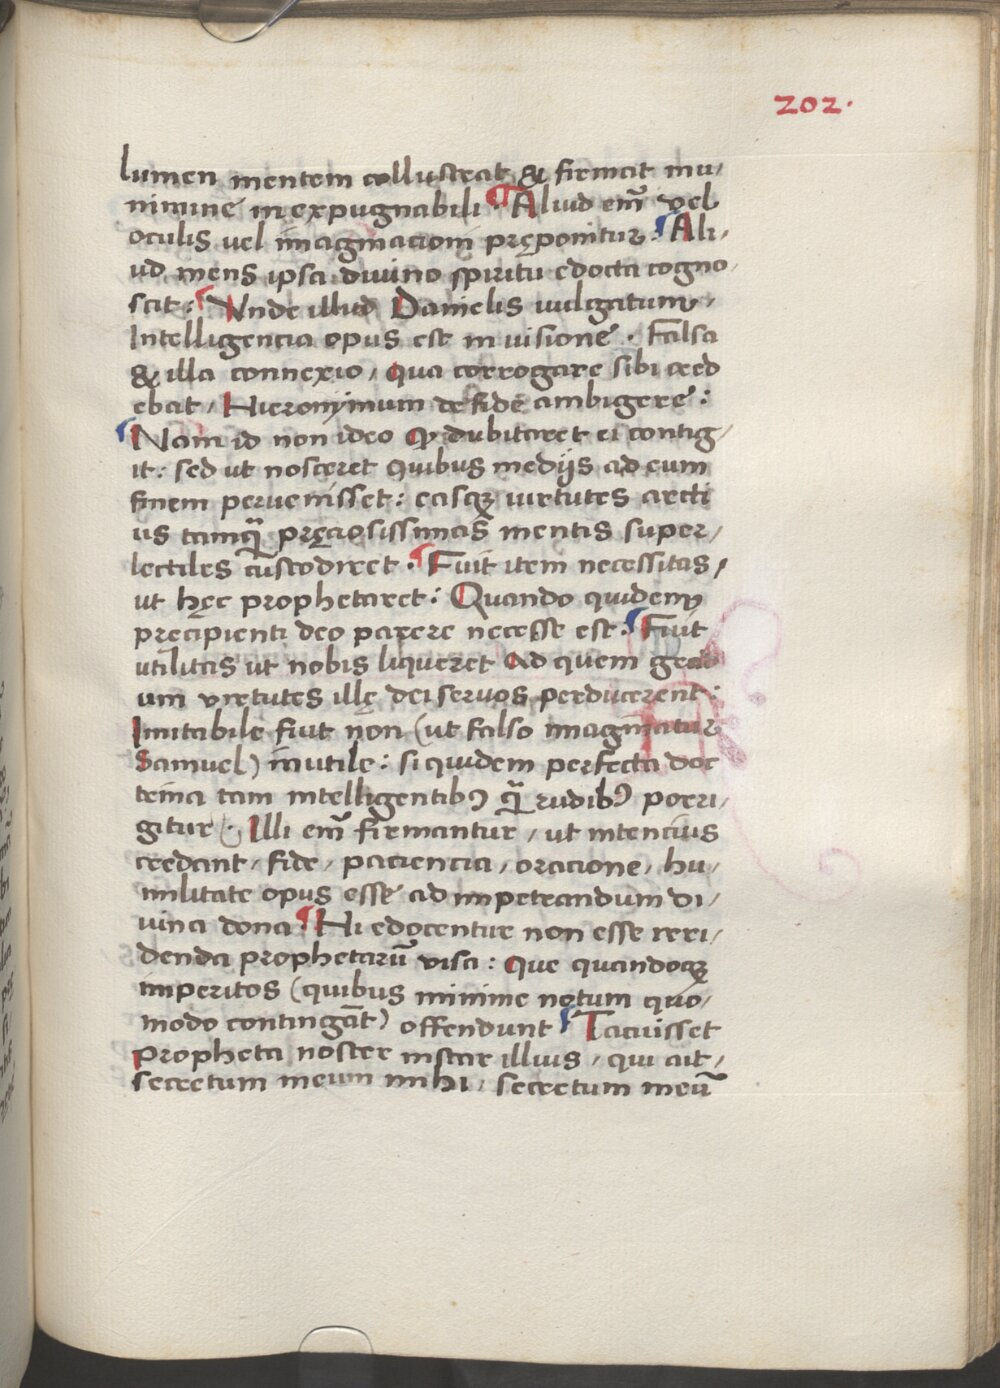 202.
lumen mentem collustrat & firmat mu/
nimine inexpugnabili. ¶ Aliud em̃ vel
oculis vel imaginacioni pręponitur: ¶ Ali/
ud mens ipsa divino spiritu edocta cogno/
scit: ¶ Vnde illud Danielis vulgatum/
Intelligencia opus est in visione. Falsa
& illa connexio, Qua corrogare sibi cred
ebat, Hieronymum de fide ambigere:
¶ Nam id non ideo qꝫ dubitaret ei contig/
it: sed ut nosceret quibus medijs ad eum
finem pervenisset: easqꝫ virtutes arcti
us tamq̃ pręciosissimas mentis super/
lectiles cũstodiret. ¶ Fuit item necessitas,
ut hęc prophetaret: Quando quidem
precipienti deo parere necesse est: ¶ Fuit
utilitas ut nobis liqueret Ad quem grad
um virtutes illę dei servos perducerent:
Imitabile fuit non (ut falso imaginatur
Samuel) inutile: si quidem perfecta doc
trina tam intelligentibꝰ q̃ rudibꝰ porri/
gitur. Illi em̃ firmantur, ut intencius
credant, fide, paciencia, oracione, hu/
militate opus esse ad impetrandum di/
vina dona ¶ Hi edocentur non esse irri/
denda prophetarũ visa: Que quandoqꝫ
imperitos (quibus minime notum quo/
modo contingãt) offendunt ¶ Tacuisset
propheta noster instar illius, qui ait,
secretum meum mihi, secretum meũ